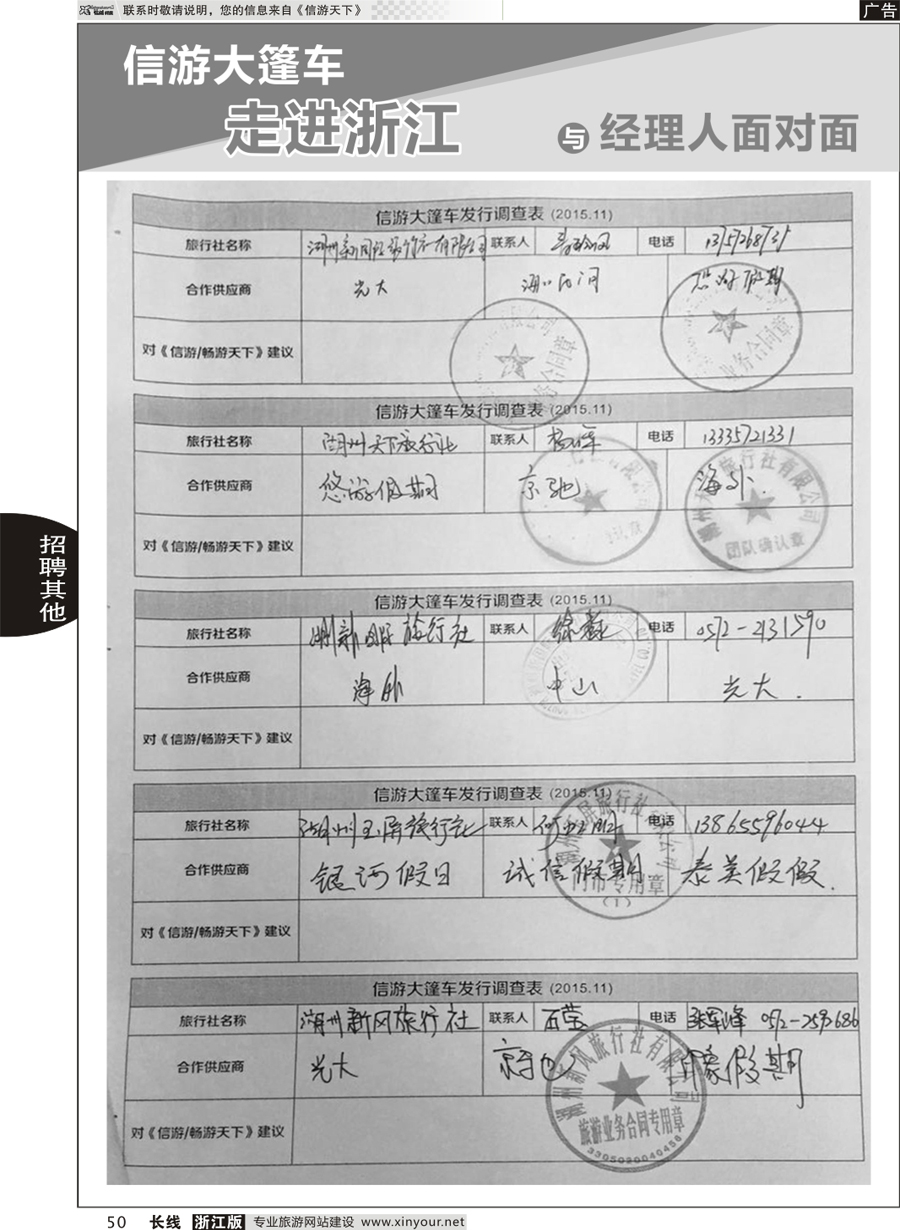 联系时敬请说明，您的信息来自《信游天下》
广告
信游大篷车
走进浙江
与 经理人面对面
信游大篷车发行调查表 (2015.11)
旅行社名称 联系人 电话
合作供应商 光大
对《信游/畅游天下》建议
业务合同章
信游大篷车发行调查表 (2015.11)
旅行社名称 湖州天下旅行社 联系人 电话 13335721331
合作供应商 悠游假期 京驰 海外
对《信游/畅游天下》建议
团队确认章
信游大篷车发行调查表 (2015.11)
旅行社名称 旅行社 联系人 电话 0572-2131590
合作供应商 海外 中山 光大
对《信游/畅游天下》建议
信游大篷车发行调查表 (2015.11)
旅行社名称 湖州玉屏旅行社 联系人 电话 13865596044
合作供应商 银河假日 诚信假期 泰美假假
对《信游/畅游天下》建议
门市专用章
(1)
信游大篷车发行调查表 (2015.11)
旅行社名称 湖州新风旅行社 联系人 石莹 电话 0572-2593686
合作供应商 光大 京驰 印象假期
对《信游/畅游天下》建议
湖州新风旅行社有限公司
旅游业务合同专用章
招聘其他
50 长线 浙江版 专业旅游网站建设 www.xinyour.net